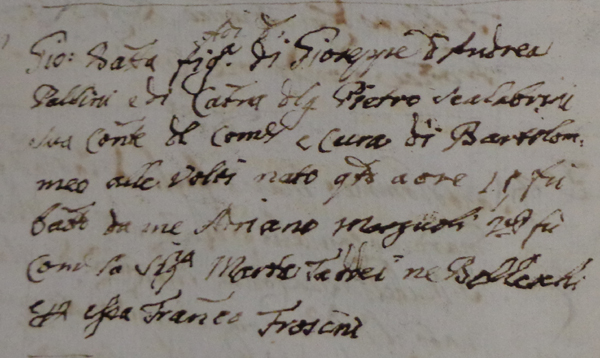 Gio: Batta figo. di Gioseppe d'Andrea
Pallini e di Catna del q Pietro Scalabrini
sua Conte del Comd e Cura di Bartolom:
meo alle Volti nato qto a ore 18 fu
batto da me Adriano Margnoli
Come la Siga Marta Taddei ne Belleschi
essa Franco Frosini